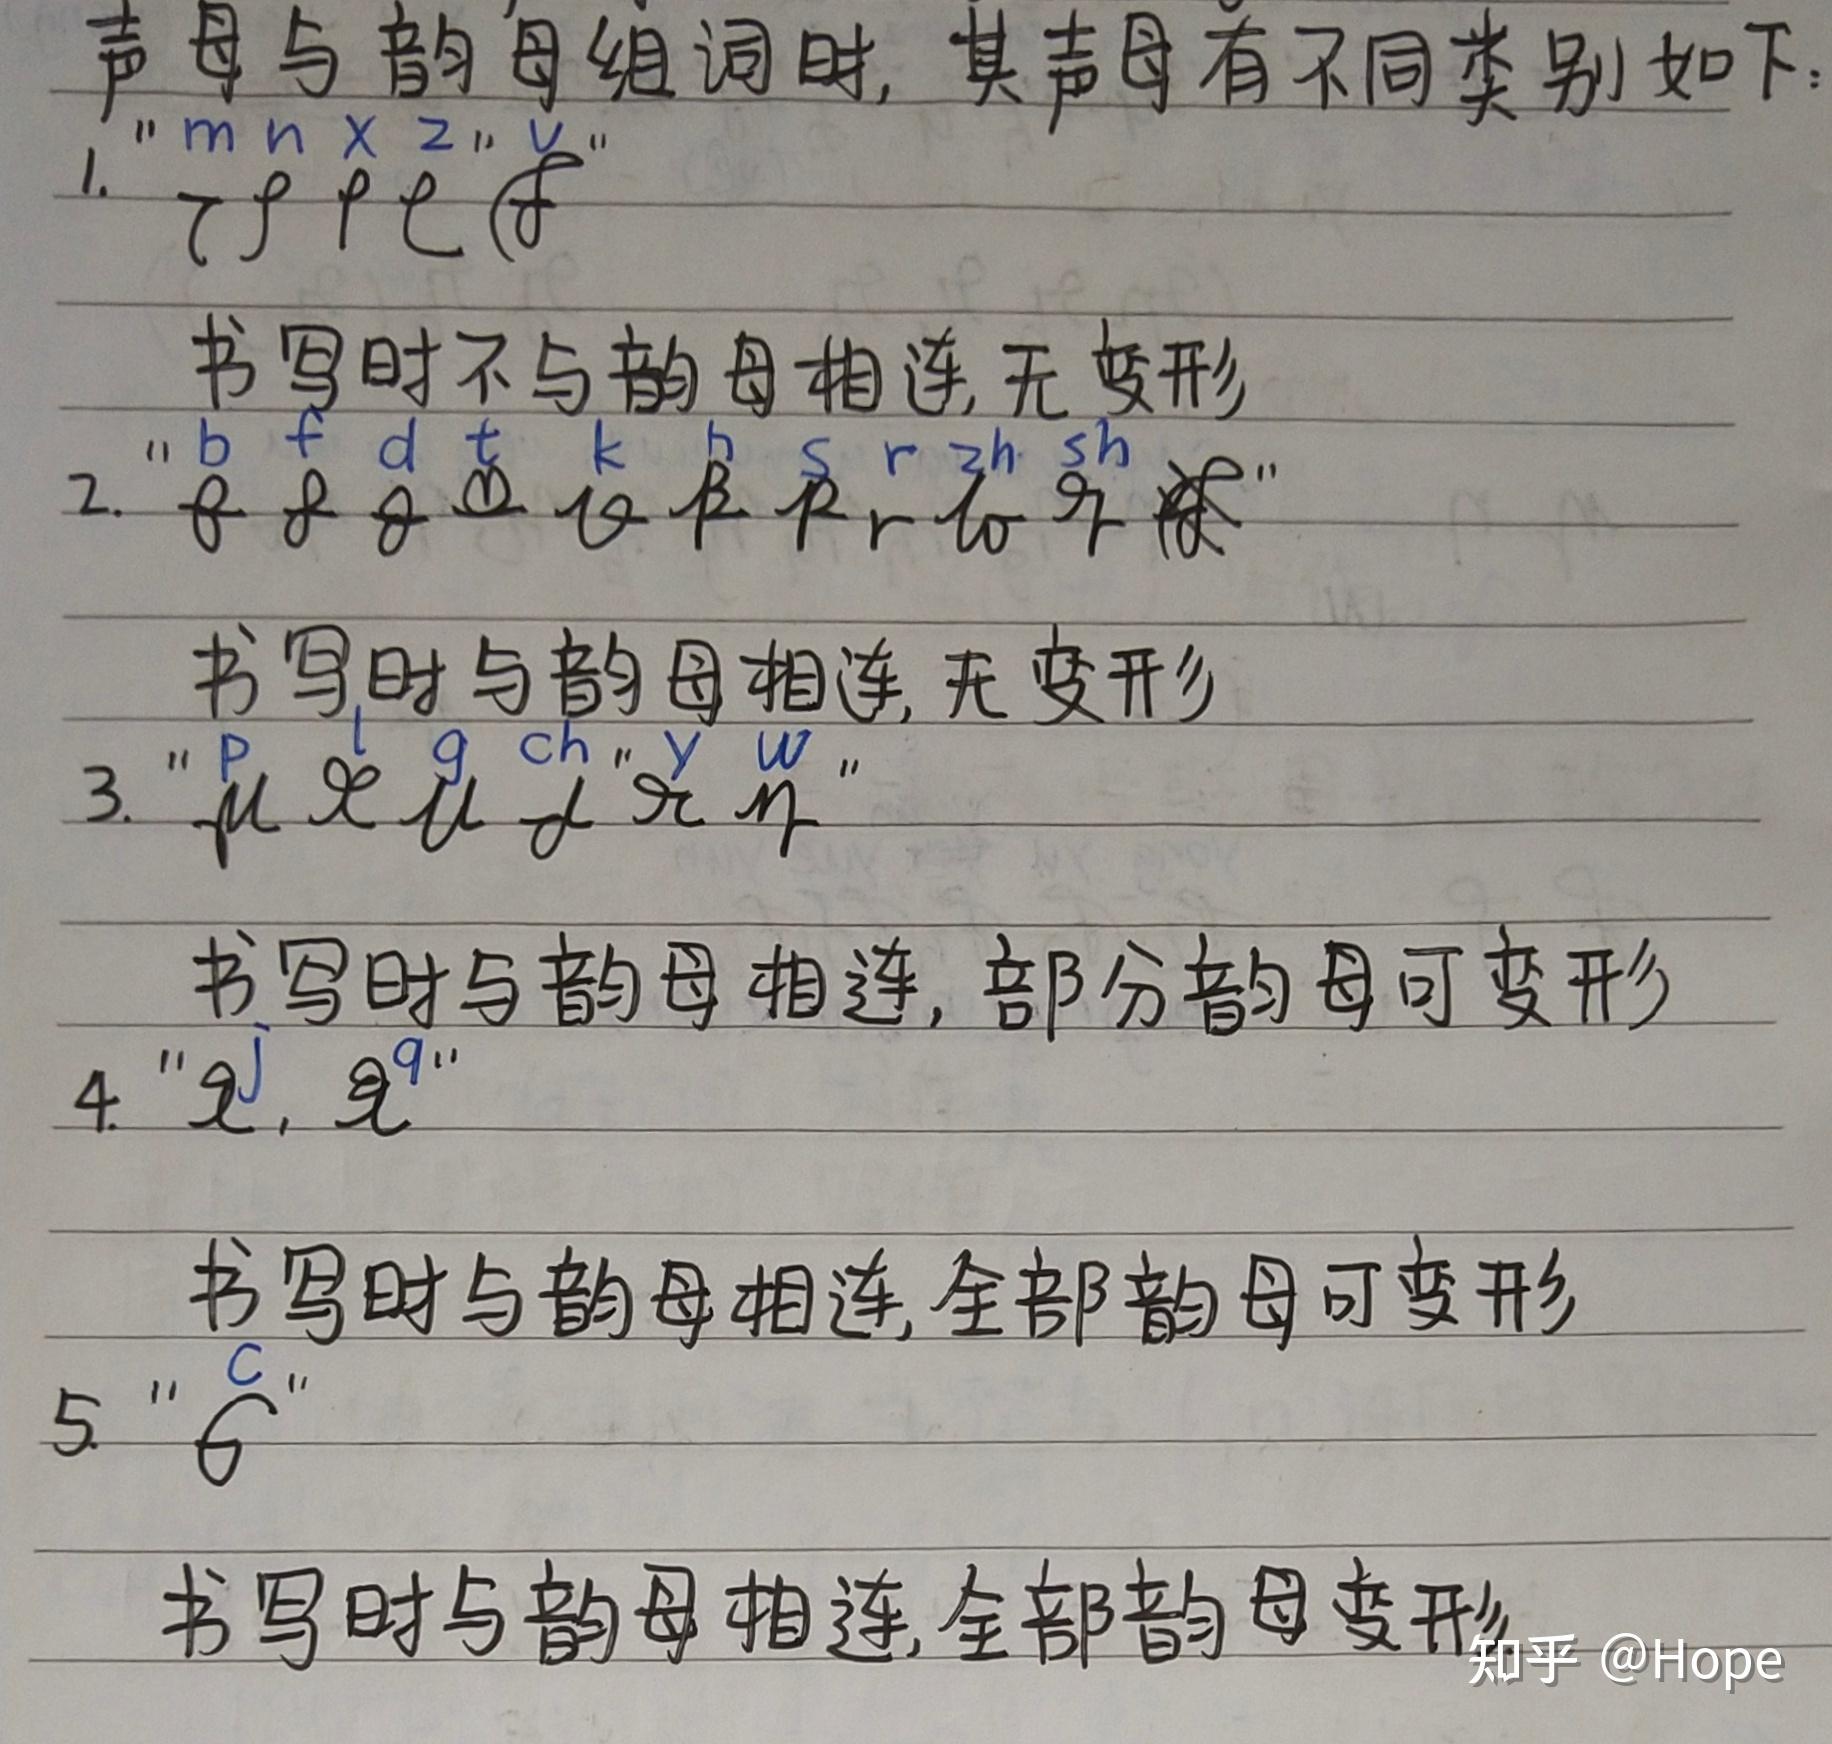 声母与韵母组词时,其声母有不同类别如下:
"m n x z" v"
1.
书写时不与韵母相连,无变形
"b f d t k h s r zh sh"
2.
书写时与韵母相连,无变形
"p l g ch" y w"
3.
书写时与韵母相连,部分韵母可变形
4. "j, q"
书写时与韵母相连,全部韵母可变形
5. "c"
书写时与韵母相连,全部韵母变形
知乎 @Hope